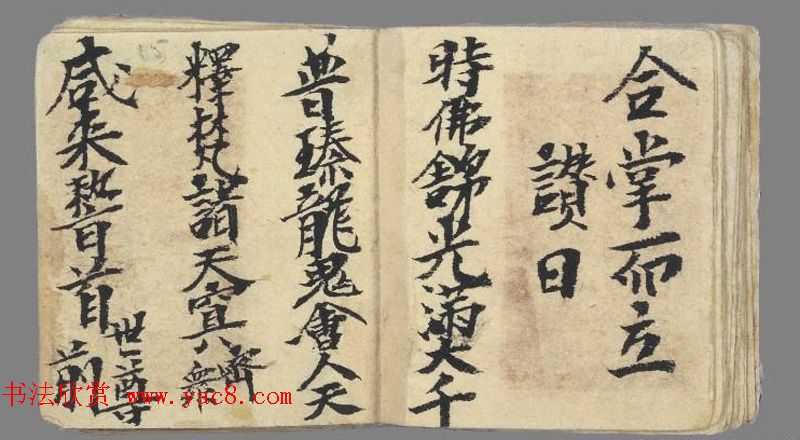 合掌而立
讚曰
時佛錦光滿大千
普臻龍鬼會人天
釋梵諸天
咸来稽首世尊前
15
书法欣赏 www.yac8.com